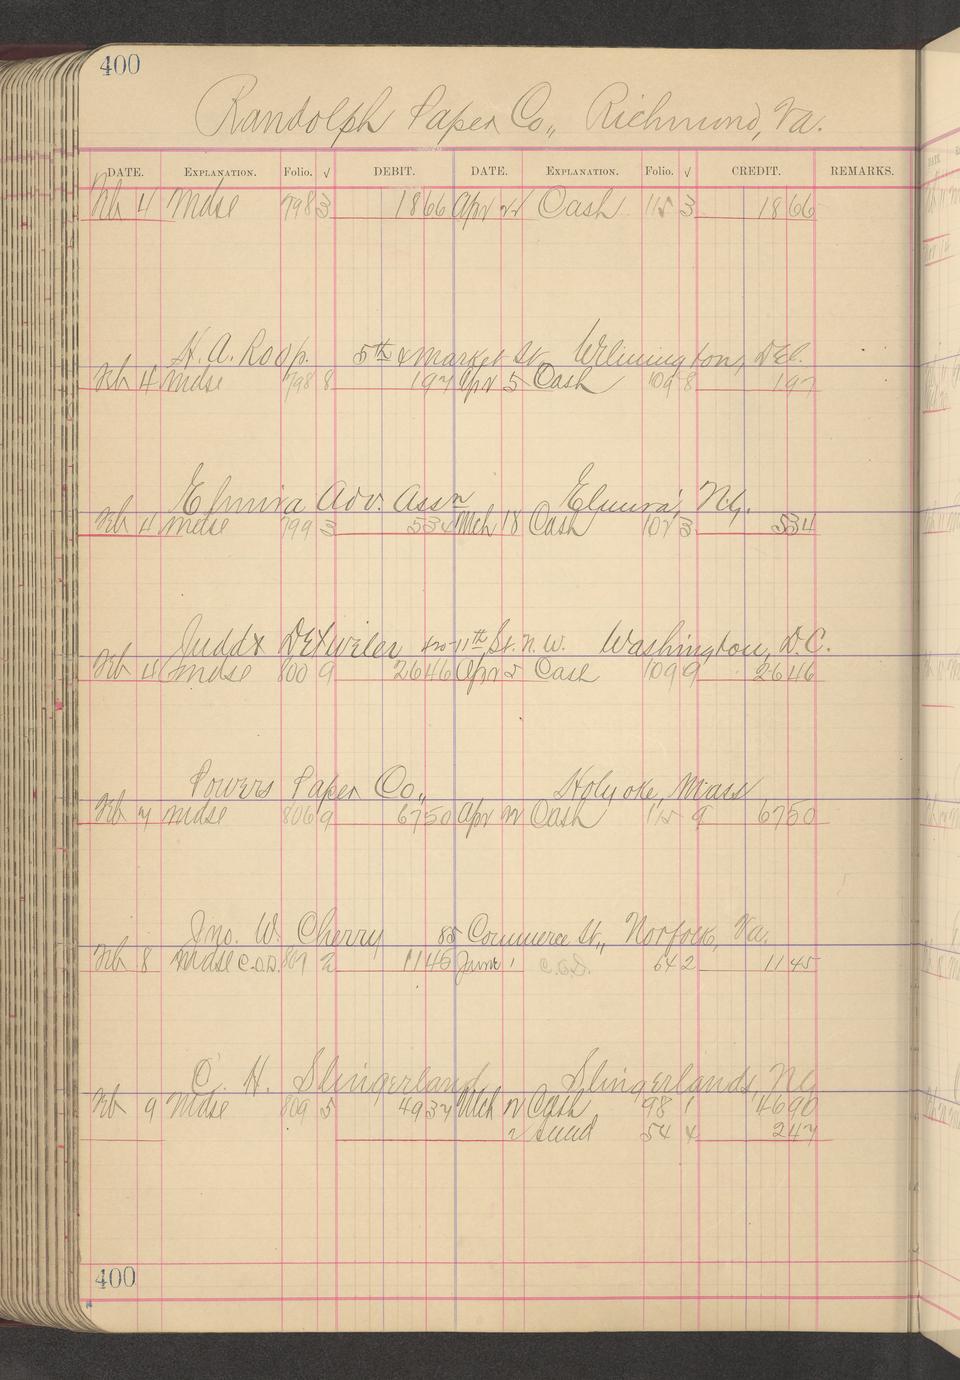 400
Randolph Paper Co,, Richmond, Va.
DATE. EXPLANATION. Folio. √ DEBIT. DATE. EXPLANATION. Folio. √ CREDIT. REMARKS.
Feb 4 Mdse 798 3 1866 Apr 22 Cash 115 3 1866
H. A. Roop. 5th & Market St. Wilmington, Del.
Feb 4 Mdse 798 8 197 Apr 5 Cash 109 8 197
Elmira Adv. Assn Elmira, N.Y.
Feb 4 Mdse 799 3 534 Mch 18 Cash 107 3 534
Judd & Detweiler 420-11th St. N. W. Washington, D.C.
Feb 4 Mdse 800 9 2646 Apr 5 Cash 109 9 2646
Powers Paper Co,, Holyoke, Mass
Feb 7 Mdse 806 9 6750 Apr 22 Cash 115 9 6750
Jno. W. Cherry 85 Commerce St,, Norfolk, Va.
Feb 8 Mdse C.O.D. 807 2 1145 June 1 C.O.D. 64 2 1145
C. H. Slingerland Slingerlands, N.Y.
Feb 9 Mdse 809 5 4937 Mch 2 Cash 98 1 4690
2 Sund 54 4 247
400